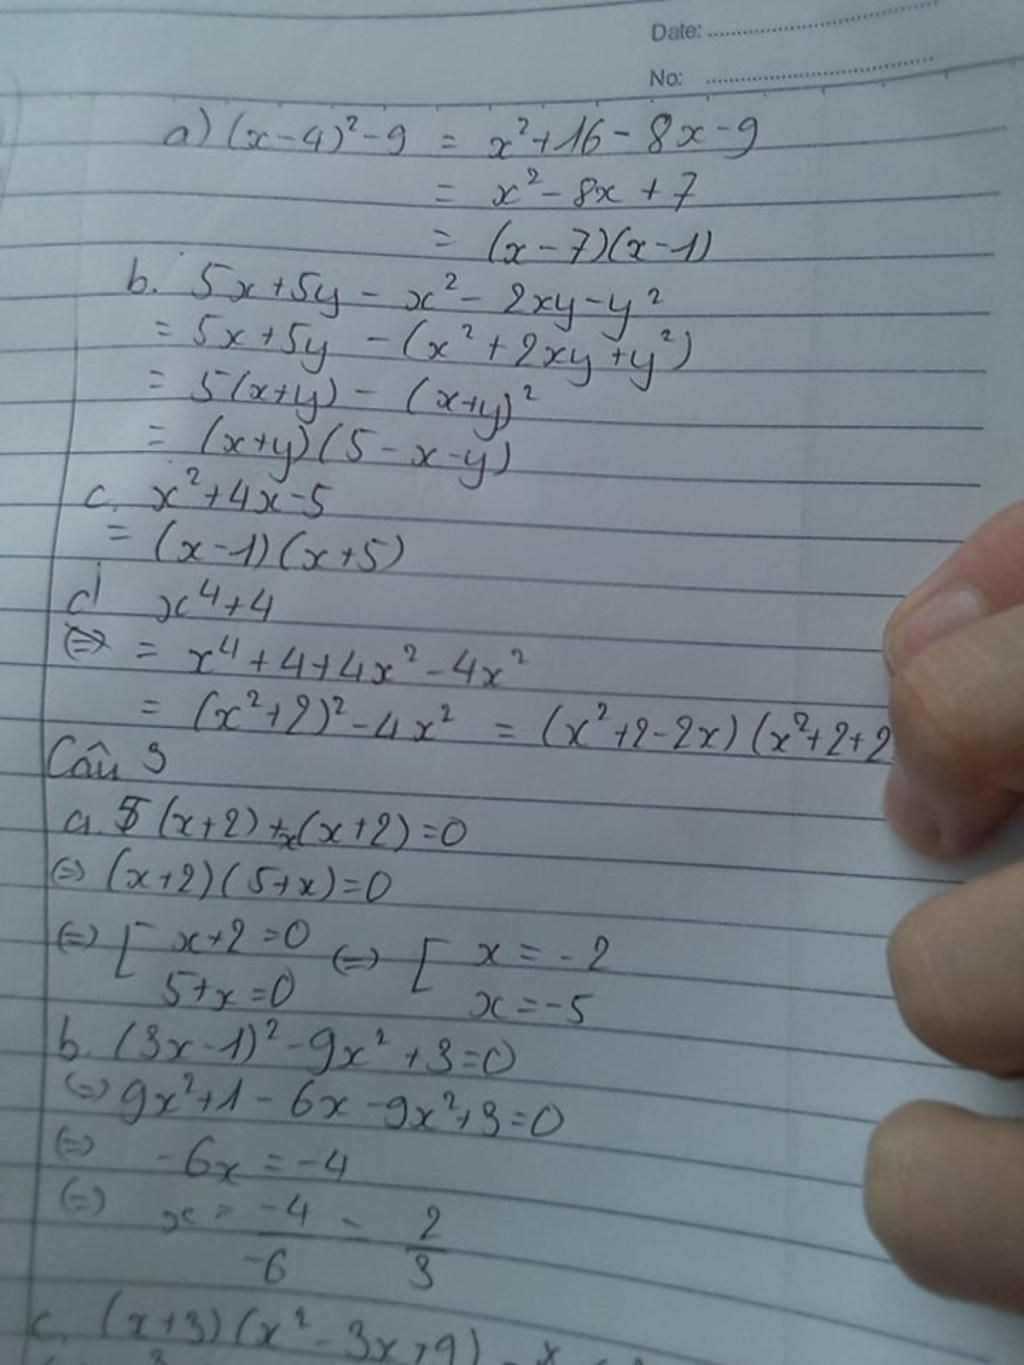 Date:
No:
a) (x-4)²-9 = x²+16-8x-9
= x²-8x+7
= (x-7)(x-1)
b. 5x+5y-x²-2xy-y²
= 5x+5y-(x²+2xy+y²)
= 5(x+y)-(x+y)²
= (x+y)(5-x-y)
c. x²+4x-5
= (x-1)(x+5)
d x⁴+4
= x⁴+4+4x²-4x²
= (x²+2)²-4x² = (x²+2-2x)(x²+2+2
Câu 3
a. 5(x+2)+x(x+2)=0
⇔ (x+2)(5+x)=0
⇔ [ x+2=0 ⇔ [ x=-2
5+x=0 x=-5
b. (3x-1)²-9x²+3=0
⇔ 9x²+1-6x-9x²+3=0
⇔ -6x=-4
⇔ x = -4/-6 = 2/3
c. (x+3)(x²-3x+9)